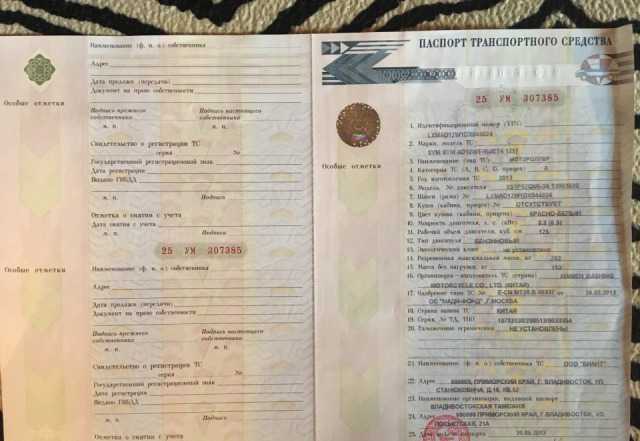 Наименование (ф. и. о.) собственника
Адрес
Дата продажи (передачи)
Документ на право собственности
Особые отметки
Подпись прежнего собственника
Подпись настоящего собственника
м. п.
м. п.
Свидетельство о регистрации ТС
серия №
Государственный регистрационный знак
Дата регистрации
Выдано ГИБДД
м. п.
Подпись
Отметка о снятии с учета
Дата снятия с учета
м. п.
Подпись
25 УМ 307385
Особые отметки
Наименование (ф. и. о.) собственника
Адрес
Дата продажи (передачи)
Документ на право собственности
Подпись прежнего собственника
Подпись настоящего собственника
м. п.
м. п.
Свидетельство о регистрации ТС
серия №
Государственный регистрационный знак
Дата регистрации
Выдано ГИБДД
м. п.
Подпись
ПАСПОРТ ТРАНСПОРТНОГО СРЕДСТВА
25 УМ 307385
Особые отметки
1. Идентификационный номер (VIN)
2. Марка, модель ТС
3. Наименование (тип ТС) МОТОРОЛЛЕР
4. Категория ТС (А, В, С, D, прицеп) А
5. Год изготовления ТС 2013
6. Модель, № двигателя
7. Шасси (рама) №
8. Кузов (кабина, прицеп) № ОТСУТСТВУЕТ
9. Цвет кузова (кабины, прицепа) КРАСНО-БЕЛЫЙ
10. Мощность двигателя, л. с. (кВт)
11. Рабочий объем двигателя, куб. см 125
12. Тип двигателя БЕНЗИНОВЫЙ
13. Экологический класс не установлено
14. Разрешенная максимальная масса, кг
15. Масса без нагрузки, кг
16. Организация - изготовитель ТС (страна)
MOTORCYCLE CO., LTD. (КИТАЙ)
17. Одобрение типа ТС №
ОС "МАДИ-ФОНД", Г.МОСКВА
18. Страна вывоза ТС КИТАЙ
19. Серия, № ТД, ТПО
20. Таможенные ограничения НЕ УСТАНОВЛЕНЫ
21. Наименование (ф. и. о.) собственника ТС ООО
22. Адрес ПРИМОРСКИЙ КРАЙ, Г. ВЛАДИВОСТОК, УЛ.
СТАНЮКОВИЧА,
23. Наименование организации, выдавшей паспорт
ВЛАДИВОСТОКСКАЯ ТАМОЖНЯ
24. Адрес ПРИМОРСКИЙ КРАЙ, Г. ВЛАДИВОСТОК, УЛ.
ПОСЬЕТСКАЯ, 21А